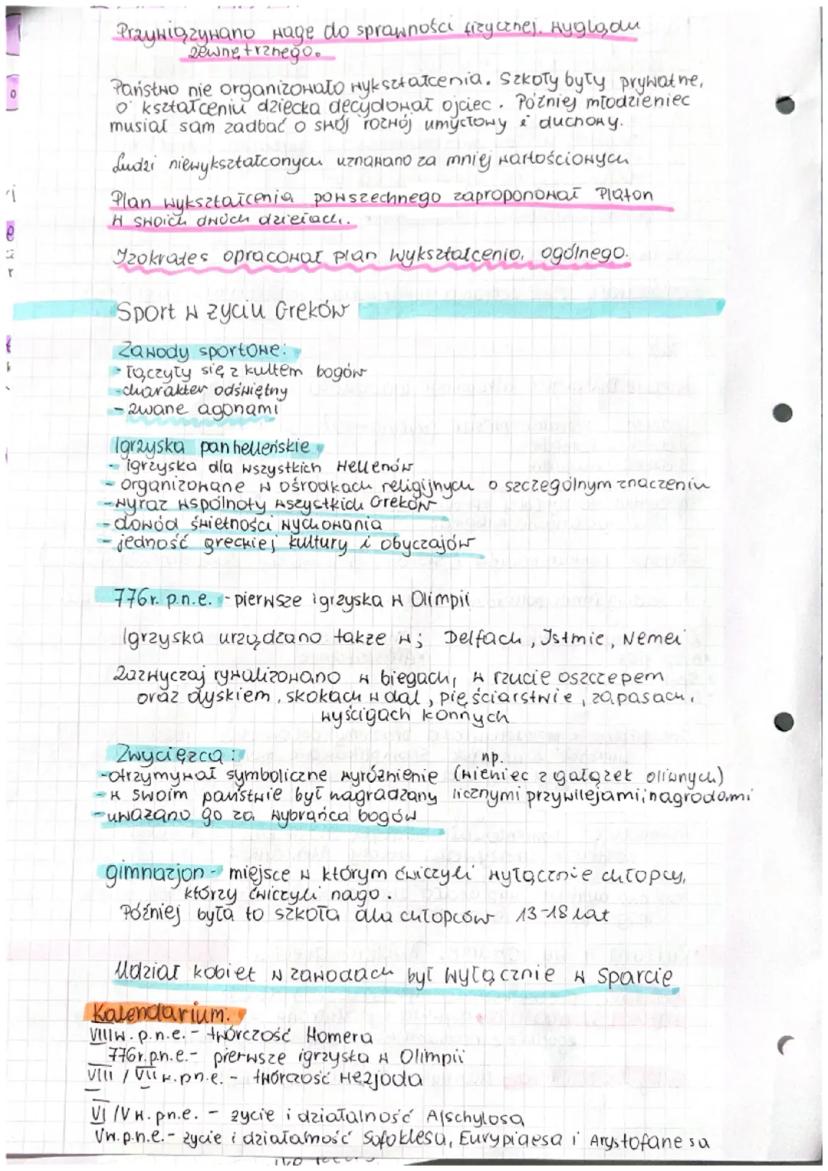 Przywiązywano wagę do sprawności fizycznej, wyglądu
zewnętrznego.
Państwo nie organizowało wykształcenia. Szkoły były prywatne,
o kształceniu dziecka decydował ojciec. Później młodzieniec
musiał sam zadbać o swój rozwój umysłowy i duchowy.
Ludzi niewykształconych uznawano za mniej wartościowych
Plan wykształcenia powszechnego zaproponował Platon
w swoich dwóch dziełach.
Izokrates opracował plan wykształcenia ogólnego.
Sport w życiu Greków
Zawody sportowe:
- łączyły się z kultem bogów
- charakter odświętny
- zwane agonami
Igrzyska panhelleńskie
- igrzyska dla wszystkich Hellenów
- organizowane w ośrodkach religijnych o szczególnym znaczeniu
- wyraz wspólnoty wszystkich Greków
- dowód świetności wychowania
- jedność greckiej kultury i obyczajów
776r. p.n.e. - pierwsze igrzyska w Olimpii
Igrzyska urządzano także w; Delfach, Istmie, Nemei
Zazwyczaj rywalizowano w biegach, w rzucie oszczepem
oraz dyskiem, skokach w dal, pięściarstwie, zapasach,
wyścigach konnych
Zwycięzca:
np.
- otrzymywał symboliczne wyróżnienie (wieniec z gałązek oliwnych)
- w swoim państwie był nagradzany licznymi przywilejami, nagrodami
- uważano go za wybrańca bogów
gimnazjon - miejsce w którym ćwiczyli wyłącznie chłopcy,
którzy ćwiczyli nago.
Później była to szkoła dla chłopców 13-18 lat
Udział kobiet w zawodach był wyłącznie w Sparcie
Kalendarium.
VIII w. p.n.e. - twórczość Homera
776r. p.n.e. - pierwsze igrzyska w Olimpii
VIII / VII w. p.n.e. - twórczość Hezjoda
VI / V w. p.n.e. - życie i działalność Ajschylosa
V w. p.n.e. - życie i działalność Sofoklesa, Eurypidesa i Arystofanesa